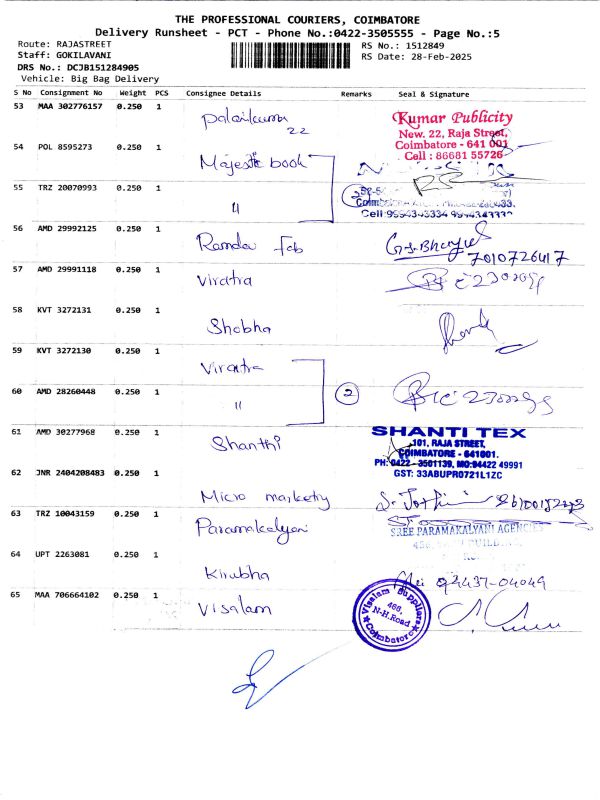 THE PROFESSIONAL COURIERS, COIMBATORE
Delivery Runsheet - PCT - Phone No.:0422-3505555 - Page No.:5
Route: RAJASTREET
RS No.: 1512849
Staff: GOKILAVANI
RS Date: 28-Feb-2025
DRS No.: DCJB151284905
Vehicle: Big Bag Delivery
S No Consignment No Weight PCS Consignee Details Remarks Seal & Signature
53 MAA 302776157 0.250 1
22
Kumar Publicity
New. 22, Raja Street,
Coimbatore - 641 001
Cell : 86681 55726
54 POL 8595273 0.250 1 Majestic book
55 TRZ 20070993 0.250 1 "
2
Cell 9994343334
56 AMD 29992125 0.250 1 Ramdev Fab
7010726417
57 AMD 29991118 0.250 1 Viratra
58 KVT 3272131 0.250 1 Shobha
59 KVT 3272130 0.250 1 Viratra
60 AMD 28260448 0.250 1 "
2
61 AMD 30277968 0.250 1 Shanthi
SHANTI TEX
101, RAJA STREET,
COIMBATORE - 641001.
PH: 0422 - 3501139, MO:94422 49991
GST: 33ABUPR0721L1ZC
62 JNR 2404208483 0.250 1 Micro marketing
63 TRZ 10043159 0.250 1 Paramakalyani
SREE PARAMAKALYANI AGENCIES
64 UPT 2263081 0.250 1 Kirubha
94437-04049
65 MAA 706664102 0.250 1 Visalam
Visalam Suppliers
466,
N-H.Road
Coimbatore